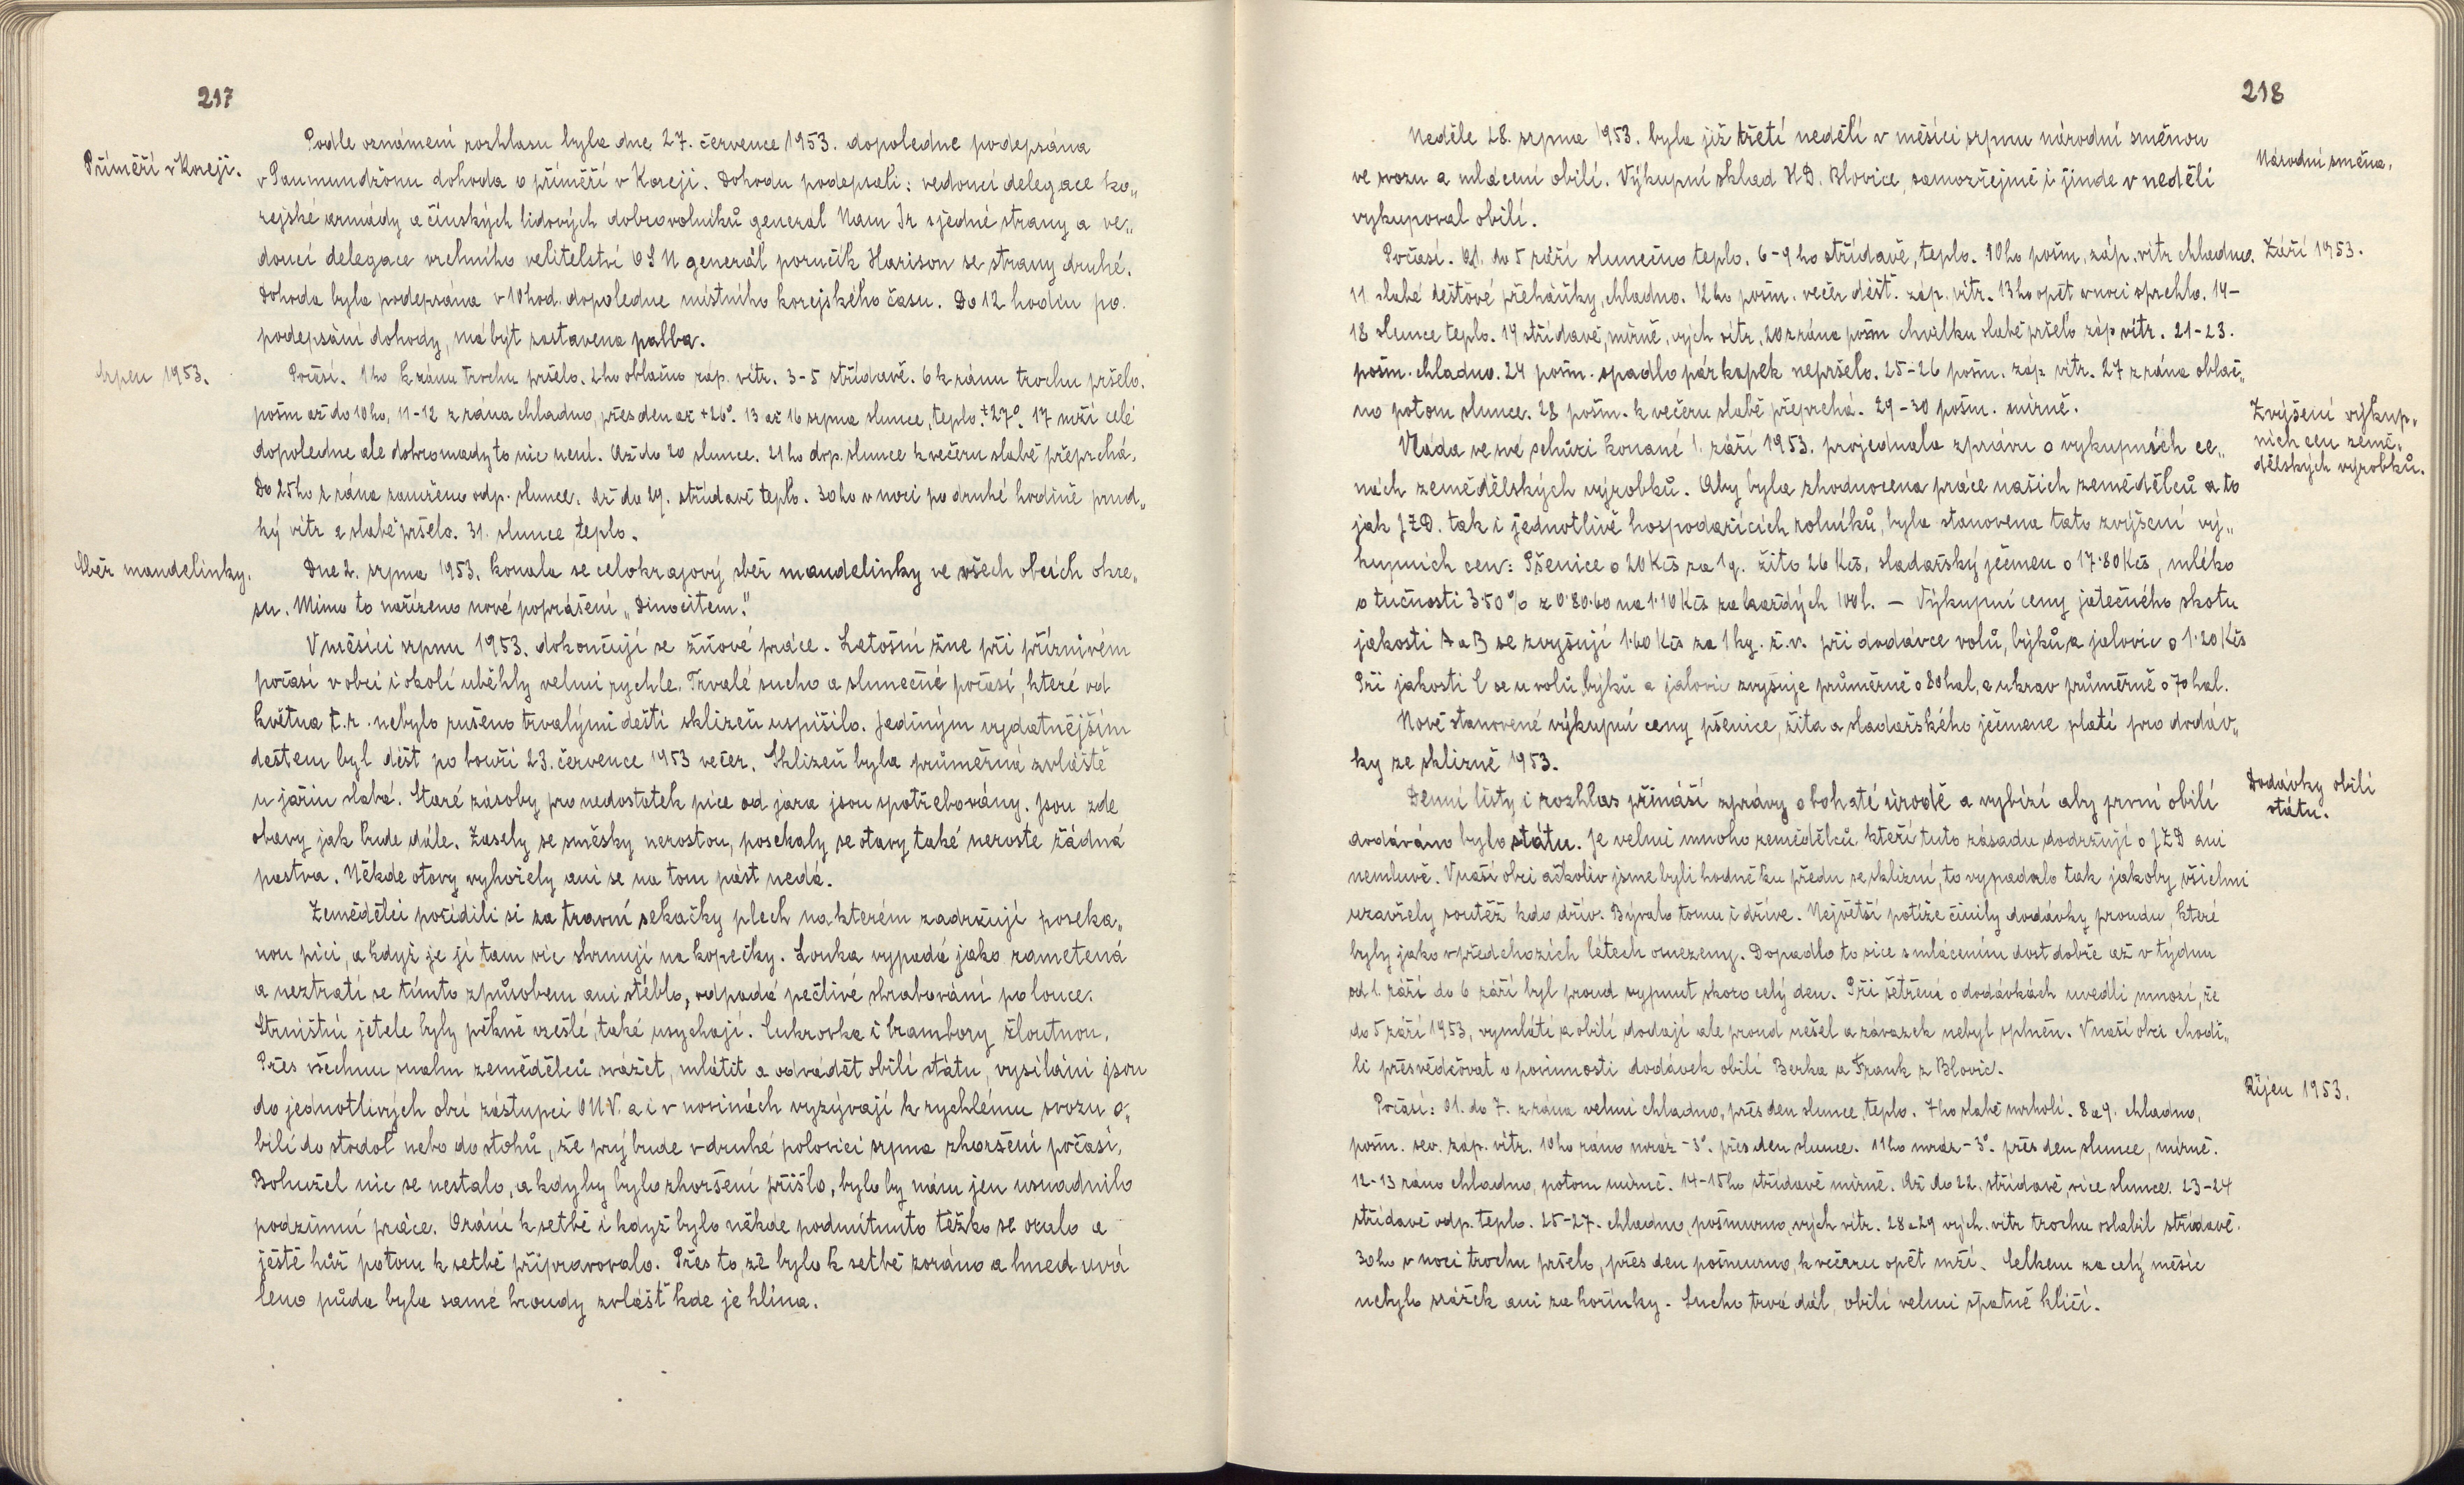 217
Příměří v Koreji.
Podle oznámení rozhlasu byla dne 27. července 1953. dopoledne podepsána
v Panmundžonu dohoda o příměří v Koreji. Dohodu podepsali: vedoucí delegace ko„
rejské armády a čínských lidových dobrovolníků generál Nam Ir s jedné strany a ve„
doucí delegace vrchního velitelství OSN generál poručík Harison se strany druhé.
Dohoda byla podepsána v 10 hod. dopoledne místního korejského času. Do 12 hodin po
podepsání dohody, má být zastavena palba.
Srpen 1953.
Počasí. 1ho k ránu trochu pršelo. 2ho oblačno záp. vítr. 3-5 střídavě. 6 k ránu trochu pršelo.
pošm až do 10ho, 11-12 z rána chladno, přes den až +26°. 13 až 16 srpna slunce, teplo ±27°. 17 mží celé
dopoledne ale dohromady to nic není. Až do 20 slunce. 21ho dop. slunce k večeru slabě přeprchá.
Do 25ho z rána zamženo odp. slunce. Až do 29. střídavě teplo. 30ho v noci po druhé hodině prud„
ký vítr a slabě pršelo. 31. slunce teplo.
Sběr mandelinky.
Dne 2. srpna 1953. konala se celokrajový sběr mandelinky ve všech obcích okre„
su. Mimo to nařízeno nové poprášení „Dinocitem."
V měsíci srpnu 1953. dokončují se žňové práce. Letošní žne při příznivém
počasí v obci i okolí uběhly velmi rychle. Trvalé sucho a slunečné počasí, které od
května t.r. nebylo rušeno trvalými dešti sklizeň uspíšilo. Jediným vydatnějším
deštem byl déšt po bouři 23. července 1953 večer. Sklizeň byla průměrná zvláště
u jařin slabá. Staré zásoby pro nedostatek píce od jara jsou spotřebovány. Jsou zde
obavy jak bude dále. Zasely se směsky nerostou, posekaly se otavy také neroste žádná
pastva. Někde otavy vyhořely ani se na tom pást nedá.
Zemědělci pořídili si za travní sekačky plech na kterém zadržují poseka„
nou píci, a když je jí tam víc shrnují na kopečky. Louka vypadá jako zametená
a neztratí se tímto způsobem ani stéblo, odpadá pečlivé shrabování po louce.
Strništní jetele byly pěkně vzešlé, také usychají. Cukrovka i brambory žloutnou.
Přes všechnu snahu zemědělců svážet, mlátit a odvádět obilí státu, vysíláni jsou
do jednotlivých obcí zástupci ONV. a i v novinách vyzývají k rychlému svozu o„
bilí do stodol nebo do stohů, že prý bude v druhé polovici srpna zhoršení počasí,
Bohužel nic se nestalo, a kdyby bylo zhoršení přišlo, bylo by nám jen usnadnilo
podzimní práce. Orání k setbě i když bylo někde podmítnuto těžko se oralo a
ještě hůř potom k setbě připravovalo. Přes to, že bylo k setbě zoráno a hned uvá
leno půda byla samé hroudy zvlášť kde je hlína.
218
Neděle 28. srpna 1953. byla již třetí nedělí v měsíci srpnu národní směnou
Národní směna.
ve svozu a mlácení obilí. Výkupní sklad H.D. Blovice, samozřejmě i jinde v neděli
vykupoval obilí.
Září 1953.
Počasí. Od 1. do 5 září slunečno teplo. 6-9ho střídavě, teplo. 10ho pošm. záp. vítr chladno.
11. slabé dešťové přeháňky, chladno. 12ho pošm. večer déšť. záp. vítr. 13ho opět v noci sprchlo. 14-
18 slunce teplo. 19 střídavě, mírně, vých vítr, 20 z rána pošm chvilku slabě pršelo záp vítr. 21-23.
pošm. chladno. 24 pošm. spadlo pár kapek nepršelo. 25-26 pošm. záp vítr. 27 z rána oblač„
no potom slunce. 28 pošm. k večeru slabě přeprchá. 29-30 pošm. mírně.
Zvýšení výkup„
ních cen země„
dělských výrobků.
Vláda ve své schůzi konané 1. září 1953. projednala zprávu o výkupních ce„
nách zemědělských výrobků. Aby byla zhodnocena práce našich zemědělců a to
jak JZD. tak i jednotlivě hospodařících rolníků, byla stanovena tato zvýšení vý„
kupních cen: Pšenice o 20 Kčs za 1q. žito 26 Kčs, sladařský ječmen o 17·80 Kčs, mléko
o tučnosti 3·50% z 0·80·60 na 1·10 Kčs za každých 100 l. — Výkupní ceny jatečného skotu
jakosti A a B se zvyšují 1·60 Kčs za 1 kg. ž.v. při dodávce volů, býků, a jalovic o 1·20 Kčs
Při jakosti C se u volů býků a jalovic zvyšuje průměrně o 80 hal, a u krav průměrně o 70 hal.
Nově stanovené výkupní ceny pšenice, žita a sladařského ječmene platí pro dodáv„
ky ze sklizně 1953.
Dodávky obilí
státu.
Denní listy i rozhlas přináší zprávy o bohaté úrodě a vybízí aby první obilí
dodáváno bylo státu. Je velmi mnoho zemědělců kteří tuto zásadu dodržují o JZD ani
nemluvě. V naší obci ačkoliv jsme byli hodně ku předu se sklizní, to vypadalo tak jakoby všichni
uzavřely soutěž kdo dřív. Bývalo tomu i dříve. Největší potíže činily dodávky proudu, které
byly jako v předchozích létech omezeny. Dopadlo to sice s mlácením dost dobře až v týdnu
od 1. září do 6 září byl proud vypnut skoro celý den. Při šetření o dodávkách uvedli mnozí, že
do 5 září 1953, vymlátí a obilí dodají ale proud nešel a závazek nebyl splněn. V naší obci chodi„
li přesvědčovat o povinnosti dodávek obilí Berka a Frank z Blovic.
Říjen 1953.
Počasí: Od 1. do 7. z rána velmi chladno, přes den slunce, teplo. 7ho slabě mrholí. 8 a 9. chladno,
pošm. sev. záp. vítr. 10ho ráno mráz -3°. přes den slunce. 11ho mráz -3°. přes den slunce, mírně.
12-13 ráno chladno, potom mírně. 14-15ho střídavě mírně. Až do 22. střídavě, více slunce. 23-24
střídavě odp. teplo. 25-27. chladno, pošmurno, vých vítr. 28 a 29 vých. vítr trochu oslabil střídavě.
30ho v noci trochu pršelo, přes den pošmurno, k večeru opět mží. Celkem za celý měsíc
nebylo srážek ani za hořínky. Sucho trvá dál, obilí velmi špatně klíčí.